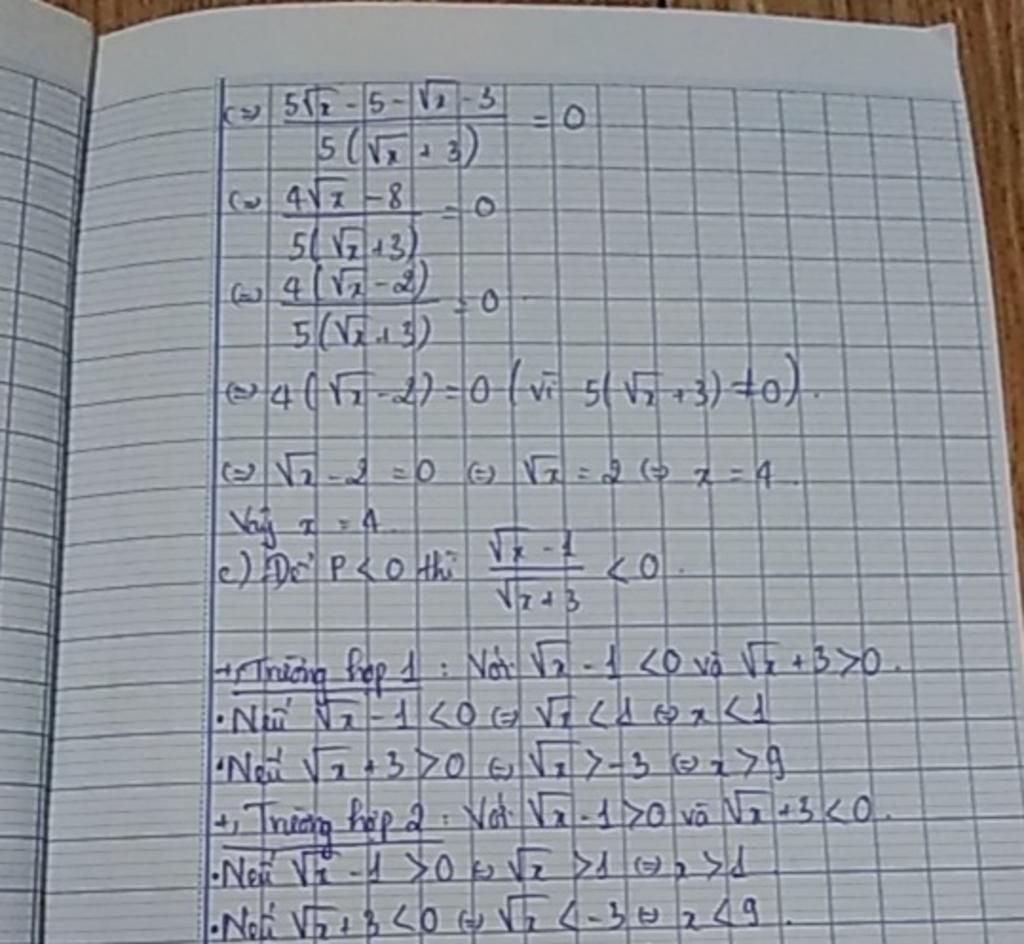 (=) (5√x - 5 - √x - 3)/(5(√x + 3)) = 0
(=) (4√x - 8)/(5(√x + 3)) = 0
(=) (4(√x - 2))/(5(√x + 3)) = 0
(=) 4(√x - 2) = 0 (vì 5(√x + 3) ≠ 0).
(=) √x - 2 = 0 (=) √x = 2 (=) x = 4.
Vậy x = 4.
c) Để P < 0 thì (√x - 1)/(√x + 3) < 0.
+, Trường hợp 1 : Với √x - 1 < 0 và √x + 3 > 0.
• Nếu √x - 1 < 0 (=) √x < 1 (=) x < 1
• Nếu √x + 3 > 0 (=) √x > -3 (=) x > 9
+, Trường hợp 2 : Với √x - 1 > 0 và √x + 3 < 0.
• Nếu √x - 1 > 0 (=) √x > 1 (=) x > 1
• Nếu √x + 3 < 0 (=) √x < -3 (=) x < 9.